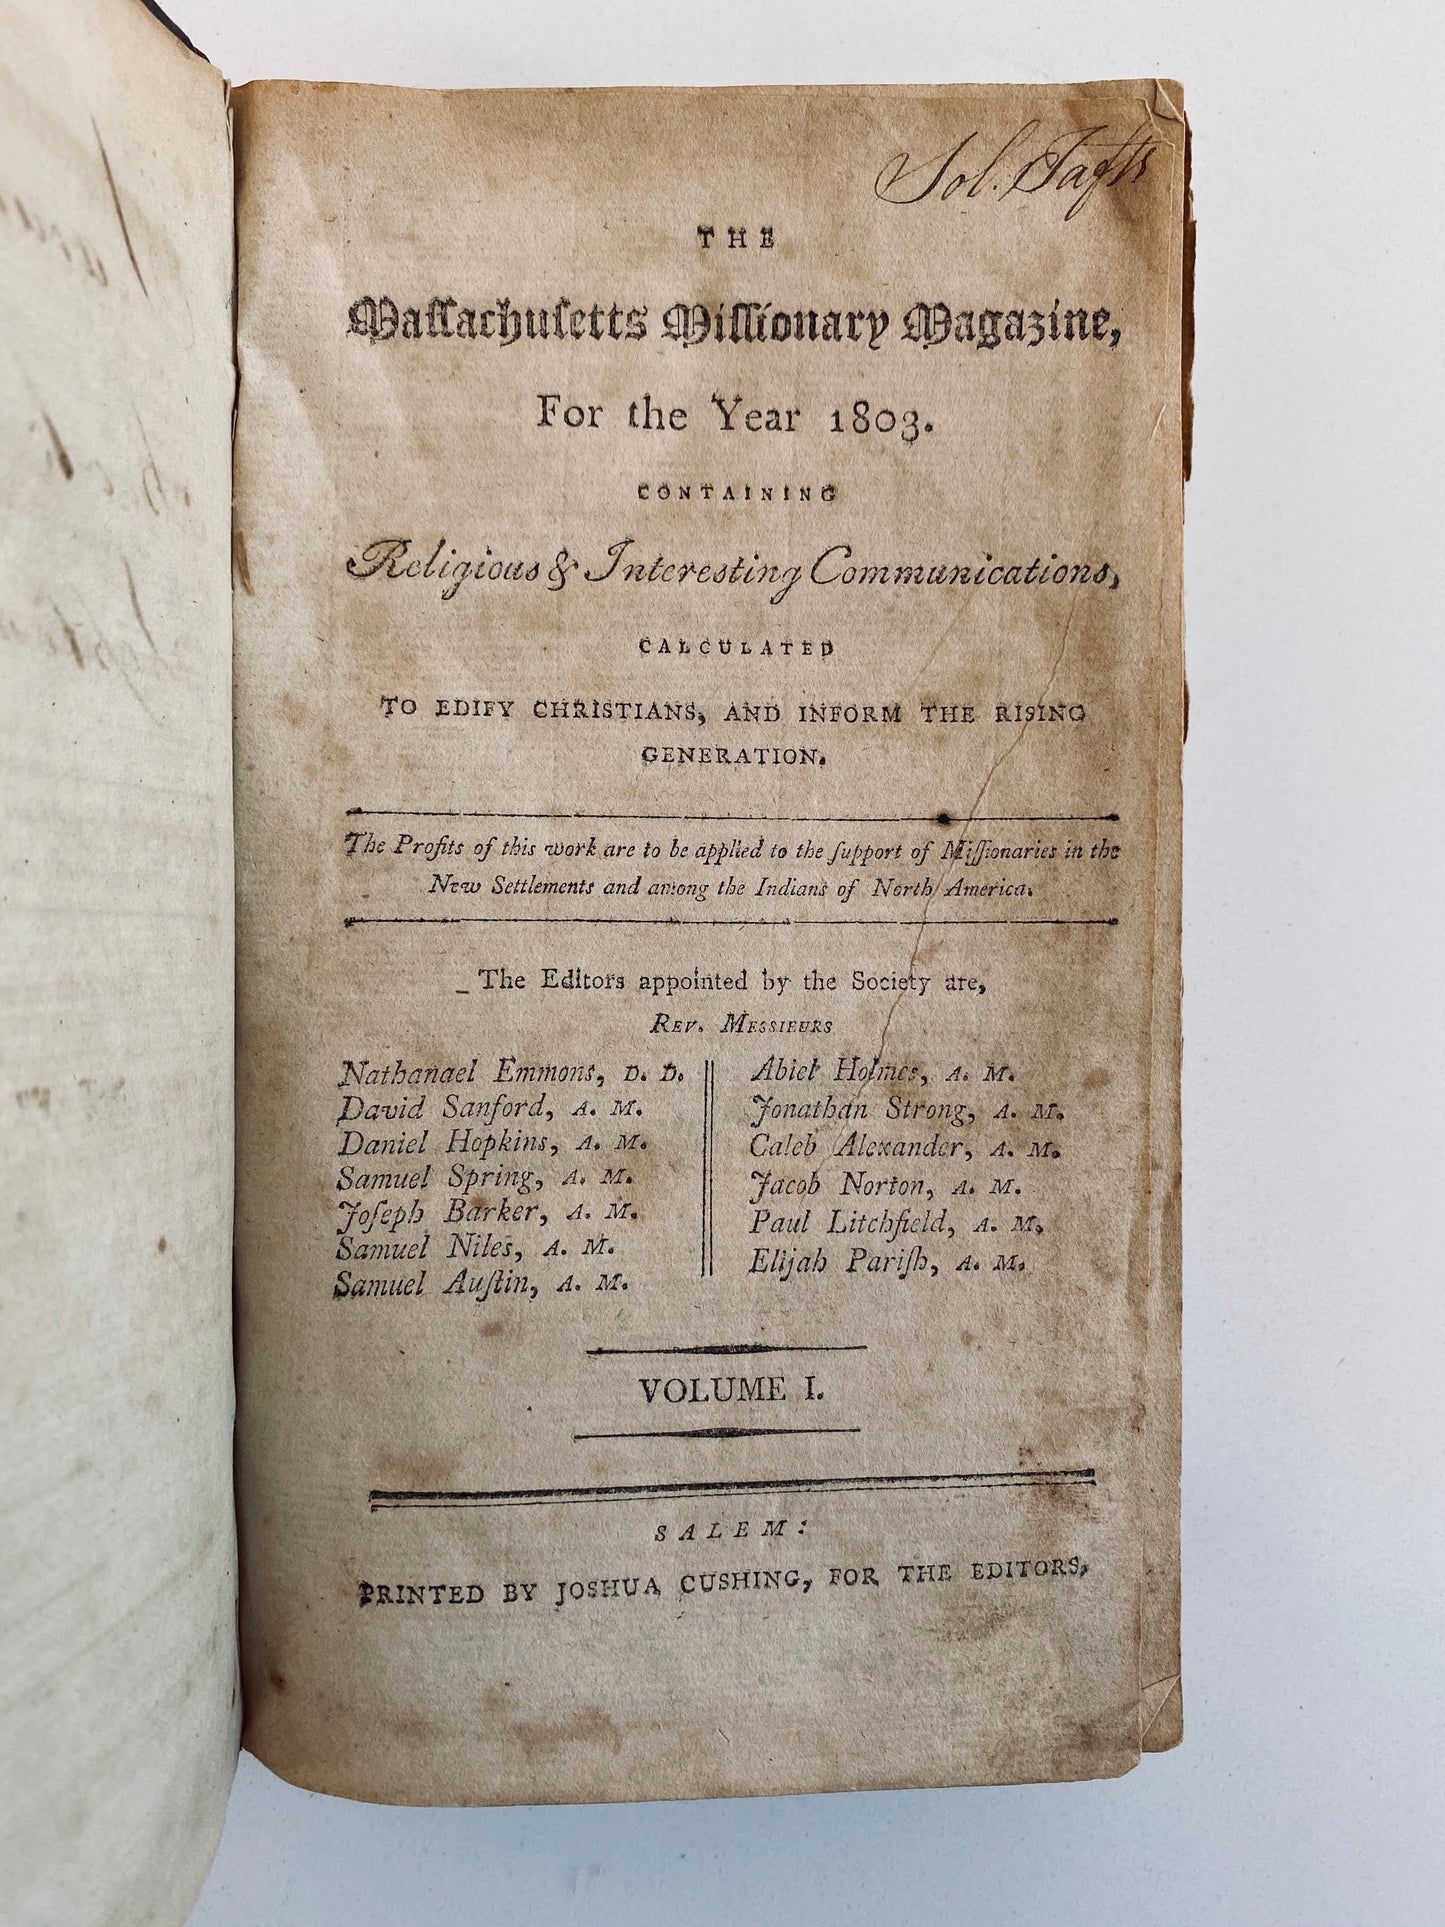 Sol. Tafts
THE
Maſſachuſetts Miſſionary Magazine,
For the Year 1803.
CONTAINING
Religious & Interesting Communications,
CALCULATED
TO EDIFY CHRISTIANS, AND INFORM THE RISING
GENERATION.
The Profits of this work are to be applied to the ſupport of Miſſionaries in the
New Settlements and among the Indians of North America.
The Editors appointed by the Society are,
REV. MESSIEURS
Nathanael Emmons, D. D.
David Sanford, A. M.
Daniel Hopkins, A. M.
Samuel Spring, A. M.
Joſeph Barker, A. M.
Samuel Niles, A. M.
Samuel Auſtin, A. M.
Abiel Holmes, A. M.
Jonathan Strong, A. M.
Caleb Alexander, A. M.
Jacob Norton, A. M.
Paul Litchfield, A. M.
Elijah Pariſh, A. M.
VOLUME I.
SALEM:
PRINTED BY JOSHUA CUSHING, FOR THE EDITORS,